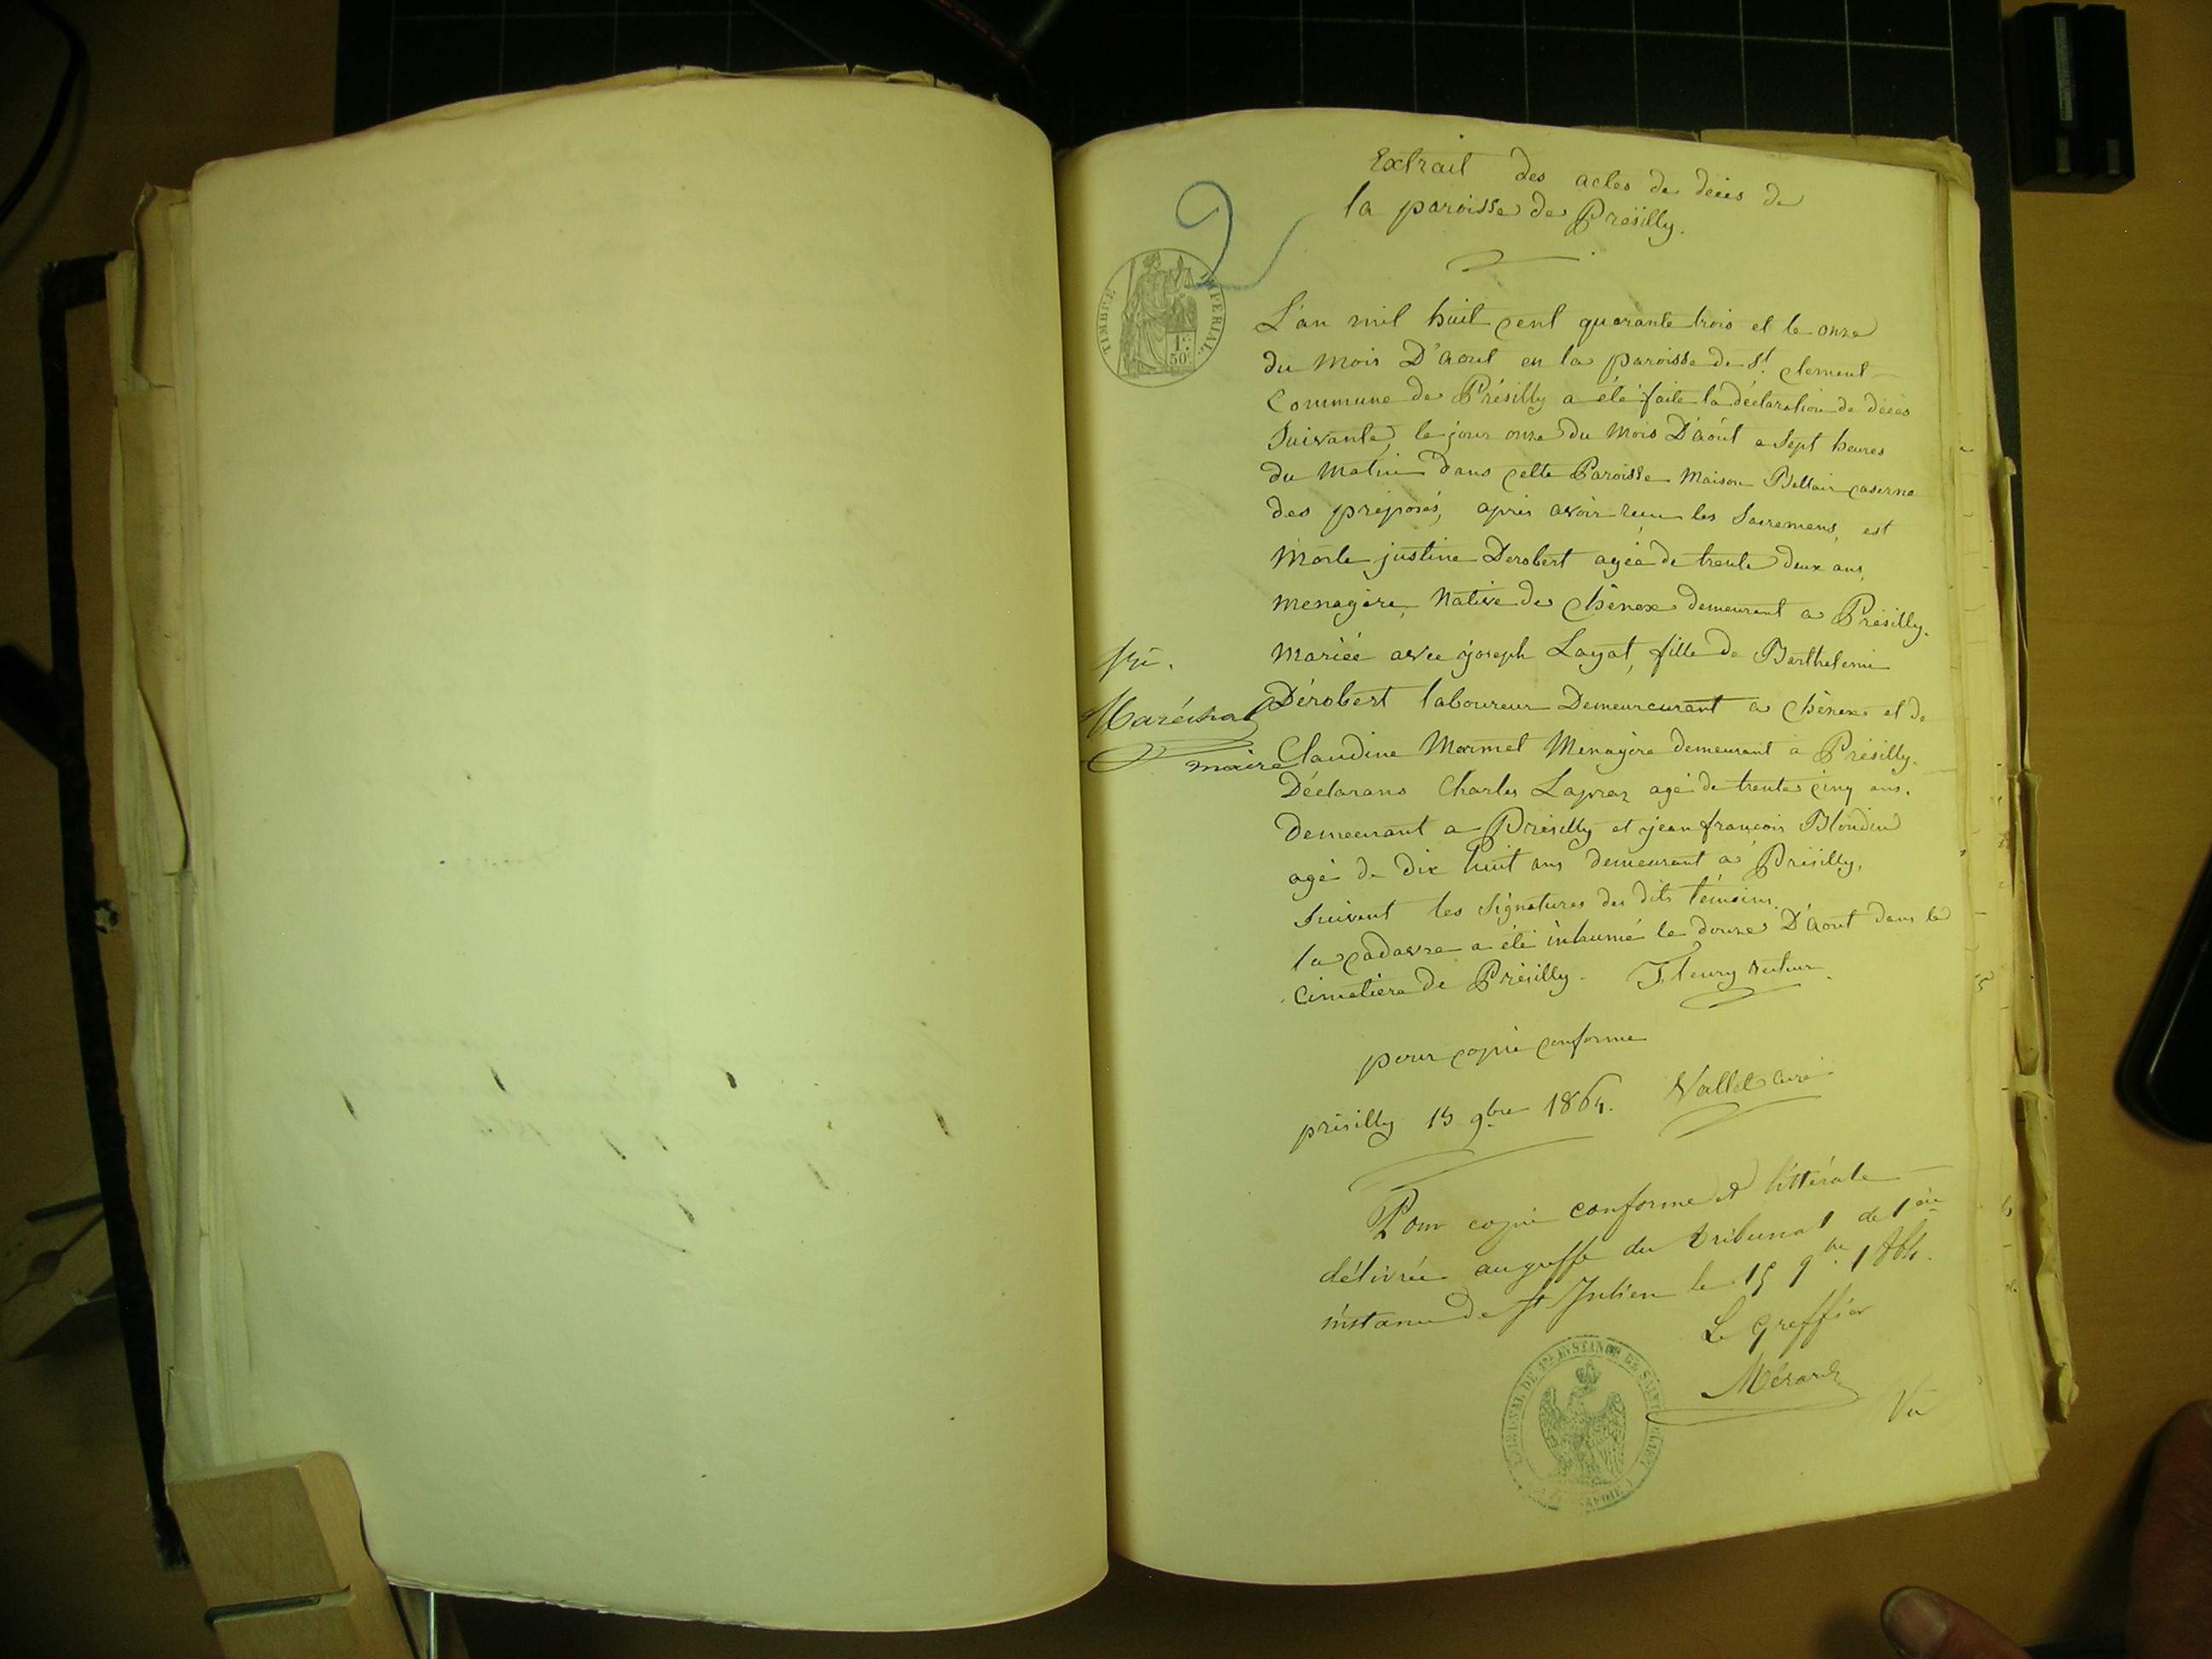 Extrait des actes de décès de
la paroisse de Présilly.
TIMBRE IMPERIAL
1F
50C
2
L'an mil huit cent quarante trois et le onze
du mois D'Aout en la paroisse de St. Clement
Commune de Présilly a été faite la déclaration de décès
Suivante, le jour onze du Mois D'Août a Sept heures
du Matin dans cette Paroisse Maison Bellair caserne
des préposés, après avoir recu les Sacremens, est
Morte justine Derobert agéé de trente deux ans,
menagère, Native de Chênex demeurant a Présilly.
Mariéé avec joseph Layat, fille de Barthelemi
Dérobert laboureur Demeureurant a Chênex et de
Claudine Marmel Menagère demeurant a Présilly.
Déclarans Charles Lapraz agé de trente cinq ans.
Demeurant a Présilly et jean françois Blondin
agé de dix huit ans demeurant a Présilly.
Suivent les Signatures des dits témoins.
le cadavre a été inhumé le douze D'Aout dans le
cimetière de Présilly. Fleury Recteur
Maréchal
maire
pour copie conforme
présilly 15 9bre 1864. Vallet curé
Pour copie conforme et littérale
délivrée au greffe du tribunal de 1ère
instance de St Julien le 15 9bre 1864.
Le Greffier
Vu
TRIBUNAL DE 1RE INSTANCE DE SAINT JULIEN